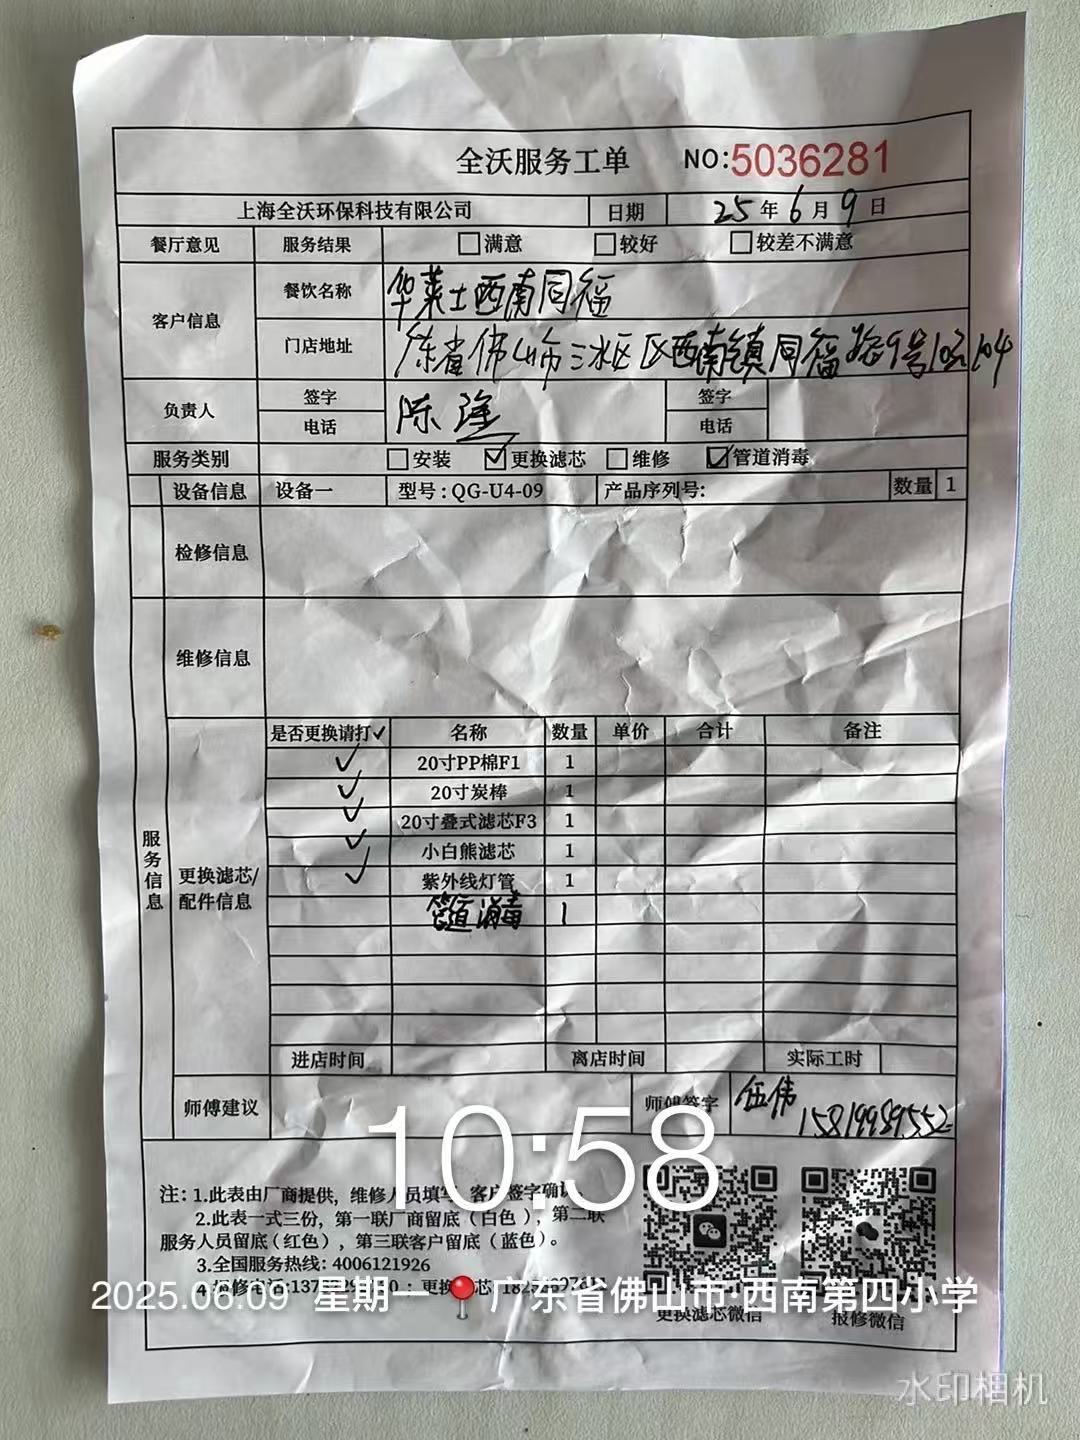 全沃服务工单 NO:5036281
上海全沃环保科技有限公司 日期 25年6月9日
餐厅意见 服务结果 □满意 □较好 □较差不满意
客户信息 餐饮名称 华莱士西南同福
门店地址 东省佛山市三水区区西南镇同福路9号1座104
负责人 签字 陈 签字
电话 电话
服务类别 □安装 ☑更换滤芯 □维修 ☑管道消毒
设备信息 设备一 型号:QG-U4-09 产品序列号: 数量 1
检修信息
维修信息
服务信息
更换滤芯/配件信息
是否更换请打✓ 名称 数量 单价 合计 备注
✓ 20寸PP棉F1 1
✓ 20寸炭棒 1
✓ 20寸叠式滤芯F3 1
✓ 小白熊滤芯 1
✓ 紫外线灯管 1
管道消毒 1
进店时间 离店时间 实际工时
师傅建议 师傅签字 伍伟
15819989552
10:58
注：1.此表由厂商提供，维修人员填写，客户签字确认。
2.此表一式三份，第一联厂商留底（白色），第二联
服务人员留底（红色），第三联客户留底（蓝色）。
3.全国服务热线：4006121926
4.报修电话:137
更换滤芯微信 报修微信
2025.06.09 星期一 广东省佛山市·西南第四小学
水印相机